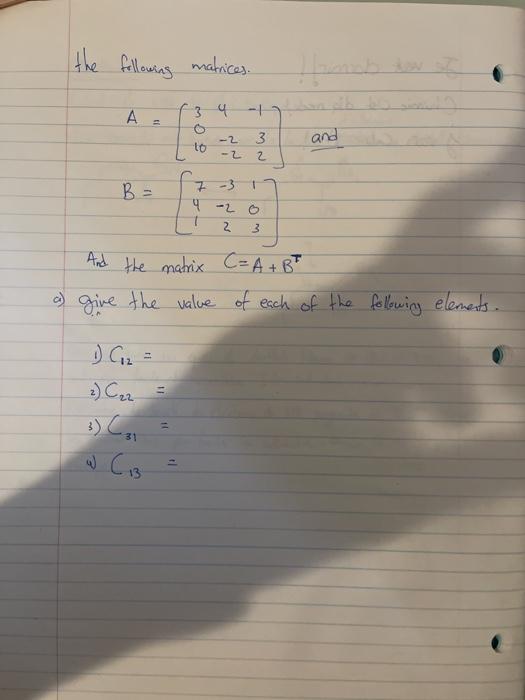 the following matrices.
A = [ 3 4 -1
0 -2 3
10 -2 2 ] and
B = [ 7 -3 1
4 -2 0
1 2 3 ]
And the matrix C = A + Bᵀ
a) give the value of each of the following elements.
1) C₁₂ =
2) C₂₂ =
3) C₃₁ =
4) C₁₃ =